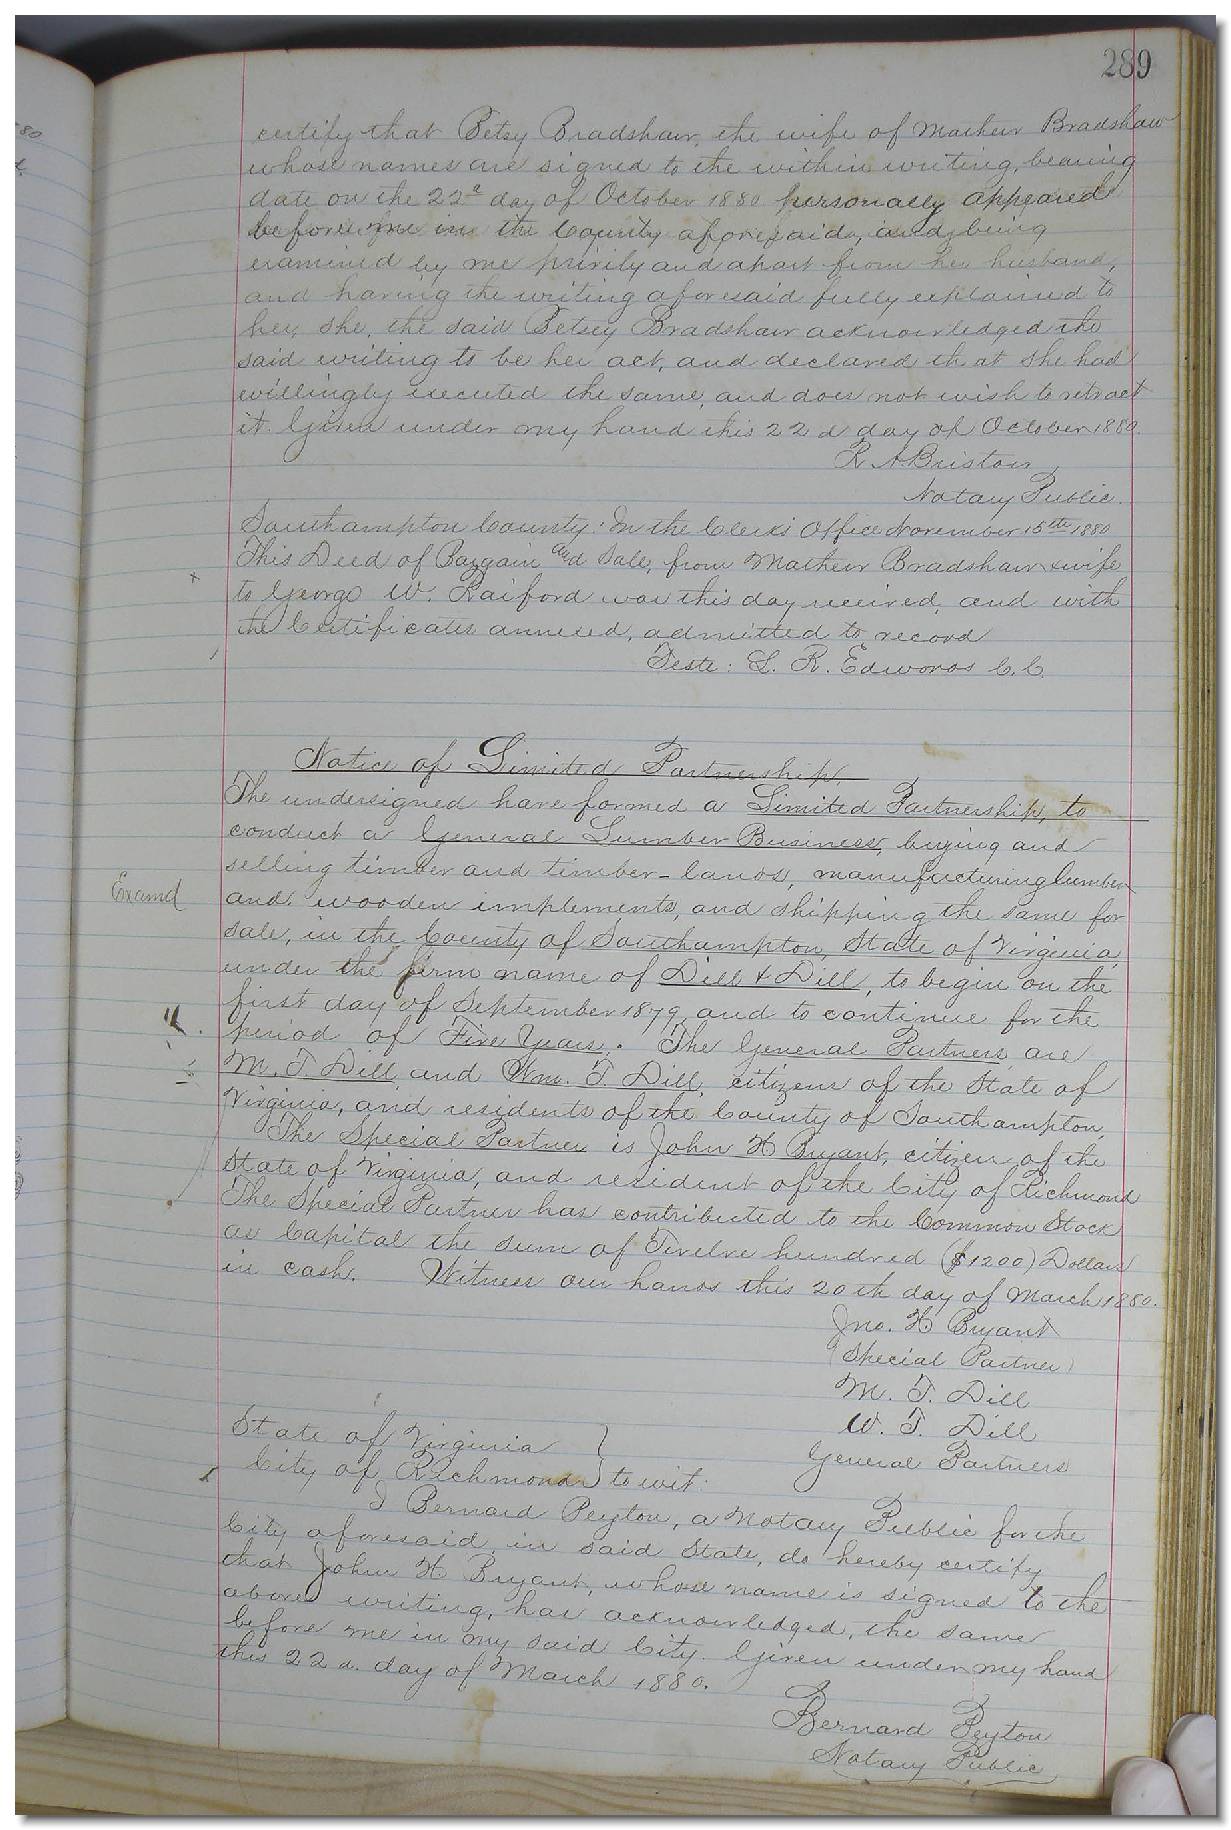 289
certify that Betsy Bradshaw, the wife of Mathew Bradshaw
whose names are signed to the within writing, bearing
date on the 22d day of October 1880 personally appeared
before me in the County aforesaid, and being
examined by me privily and apart from her husband,
and having the writing aforesaid fully explained to
her, she, the said Betsey Bradshaw acknowledged the
said writing to be her act, and declared that she had
willingly executed the same, and does not wish to retract
it. Given under my hand this 22d day of October 1880.
R. A. Bristow
Notary Public.
Southampton County: In the Clerk's Office November 15th 1880
This Deed of Bargain and Sale, from Mathew Bradshaw & wife
to George W. Raiford was this day received, and with
the Certificates annexed, admitted to record
Teste: L. R. Edwards C.C.
Notice of Limited Partnership.
The undersigned have formed a Limited Partnership, to
conduct a General Lumber Business, buying and
selling timber and timber-lands, manufacturing lumber
Examd
and wooden implements, and shipping the same for
sale, in the County of Southampton, State of Virginia,
under the firm name of Dill & Dill, to begin on the
first day of September 1879, and to continue for the
period of Five Years. The General Partners are
M. T. Dill and Wm. T. Dill, citizens of the State of
Virginia, and residents of the County of Southampton,
The Special Partner is John H Bryant, citizen of the
State of Virginia, and resident of the City of Richmond
The Special Partner has contributed to the Common Stock
as Capital the sum of Twelve hundred ($1200) Dollars
in cash. Witness our hands this 20th day of March 1880.
Jno. H Bryant
(Special Partner)
M. T. Dill
W. T. Dill
General Partners
State of Virginia }
City of Richmond } to wit:
I Bernard Peyton, a Notary Public for the
City aforesaid, in said State, do hereby certify
that John H Bryant, whose name is signed to the
above writing, has acknowledged, the same
before me in my said City. Given under my hand
this 22d. day of March 1880.
Bernard Peyton
Notary Public